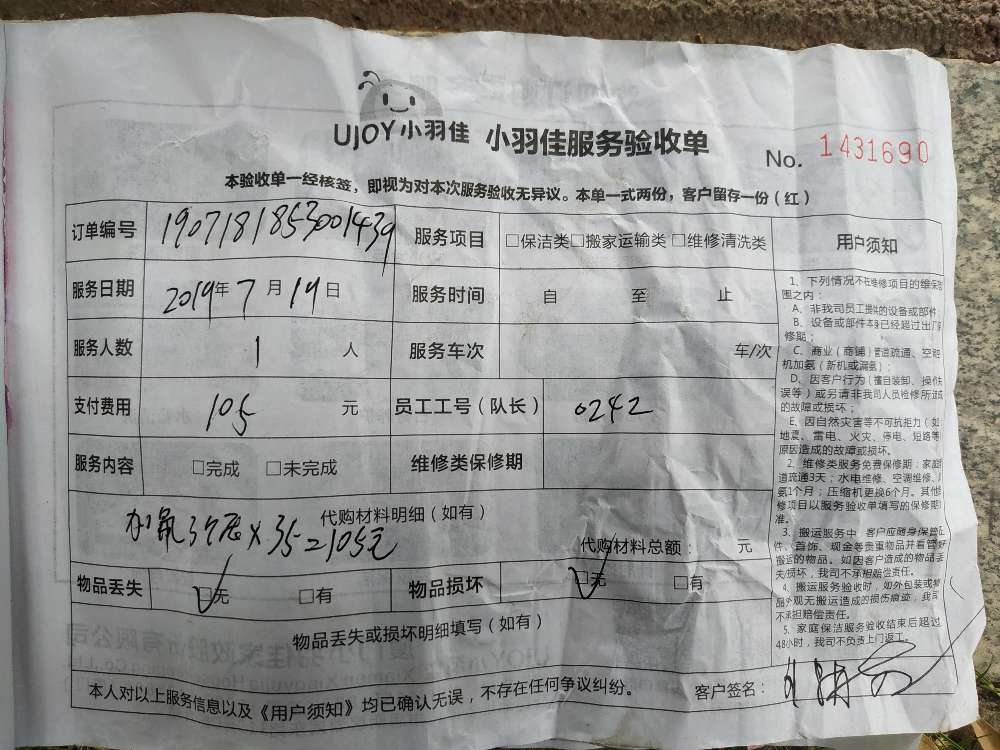 UJOY小羽佳 小羽佳服务验收单 No. 1431690
本验收单一经核签，即视为对本次服务验收无异议。本单一式两份，客户留存一份（红）
订单编号 1907181853001439 服务项目 □保洁类□搬家运输类□维修清洗类
服务日期 2019年7月19日 服务时间 自 至 止
服务人数 1 人 服务车次 车/次
支付费用 105 元 员工工号（队长） 0242
服务内容 □完成 □未完成 维修类保修期
代购材料明细（如有）
加氟3个压×35=105元
代购材料总额： 元
物品丢失 □无 □有 物品损坏 □无 □有
物品丢失或损坏明细填写（如有）
本人对以上服务信息以及《用户须知》均已确认无误，不存在任何争议纠纷。 客户签名：
用户须知
1、下列情况不在维修项目的维保范
围之内：
A、非我司员工提供的设备或部件；
B、设备或部件本身已经超过出厂保
修期；
C、商业（商铺）管道疏通、空调
机加氨（新机或漏氨）；
D、因客户行为（擅自装卸、操作失
误等）或另请非我司人员检修所造成
的故障或损坏；
E、因自然灾害等不可抗拒力（如
地震、雷电、火灾、停电、短路等
原因造成的故障或损坏。
2、维修类服务免费保修期：家庭
道疏通3天；水电维修、空调维修、
氨1个月；压缩机更换6个月。其他维
修项目以服务验收单填写的保修期
准。
3、搬运服务中，客户应随身保管
件、首饰、现金等贵重物品并看管好
搬运的物品。如因客户造成的物品丢
失/损坏，我司不承担赔偿责任。
4、搬运服务验收时，如外包装或物
品外观无搬运造成的损伤痕迹，我司
不承担赔偿责任。
5、家庭保洁服务验收结束后超过
48小时，我司不负责上门返工。